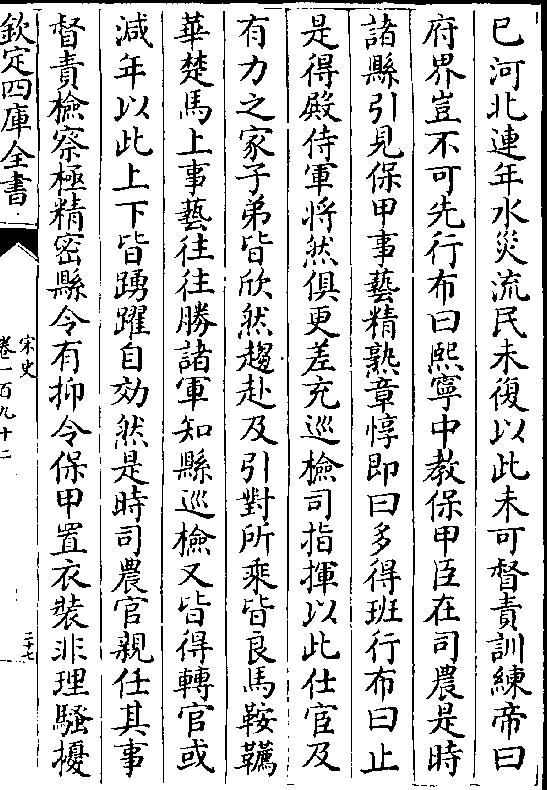 已河北連年水災流民未復以此未可督責訓練帝曰
府界豈不可先行布曰熙寧中教保甲臣在司農是時
諸縣引見保甲事藝精熟章惇即曰多得班行布曰止
是得殿侍軍將然俱更差充巡檢司指揮以此仕宦及
有力之家子弟皆欣然趨赴及引對所乘皆良馬鞍韉
華楚馬上事藝往往勝諸軍知縣巡檢又皆得轉官或
減年以此上下皆踴躍自効然是時司農官親任其事
督責檢察極精密縣令有抑令保甲置衣裝非理騷擾
欽定四庫全書
宋史
卷一百九十二
二十七